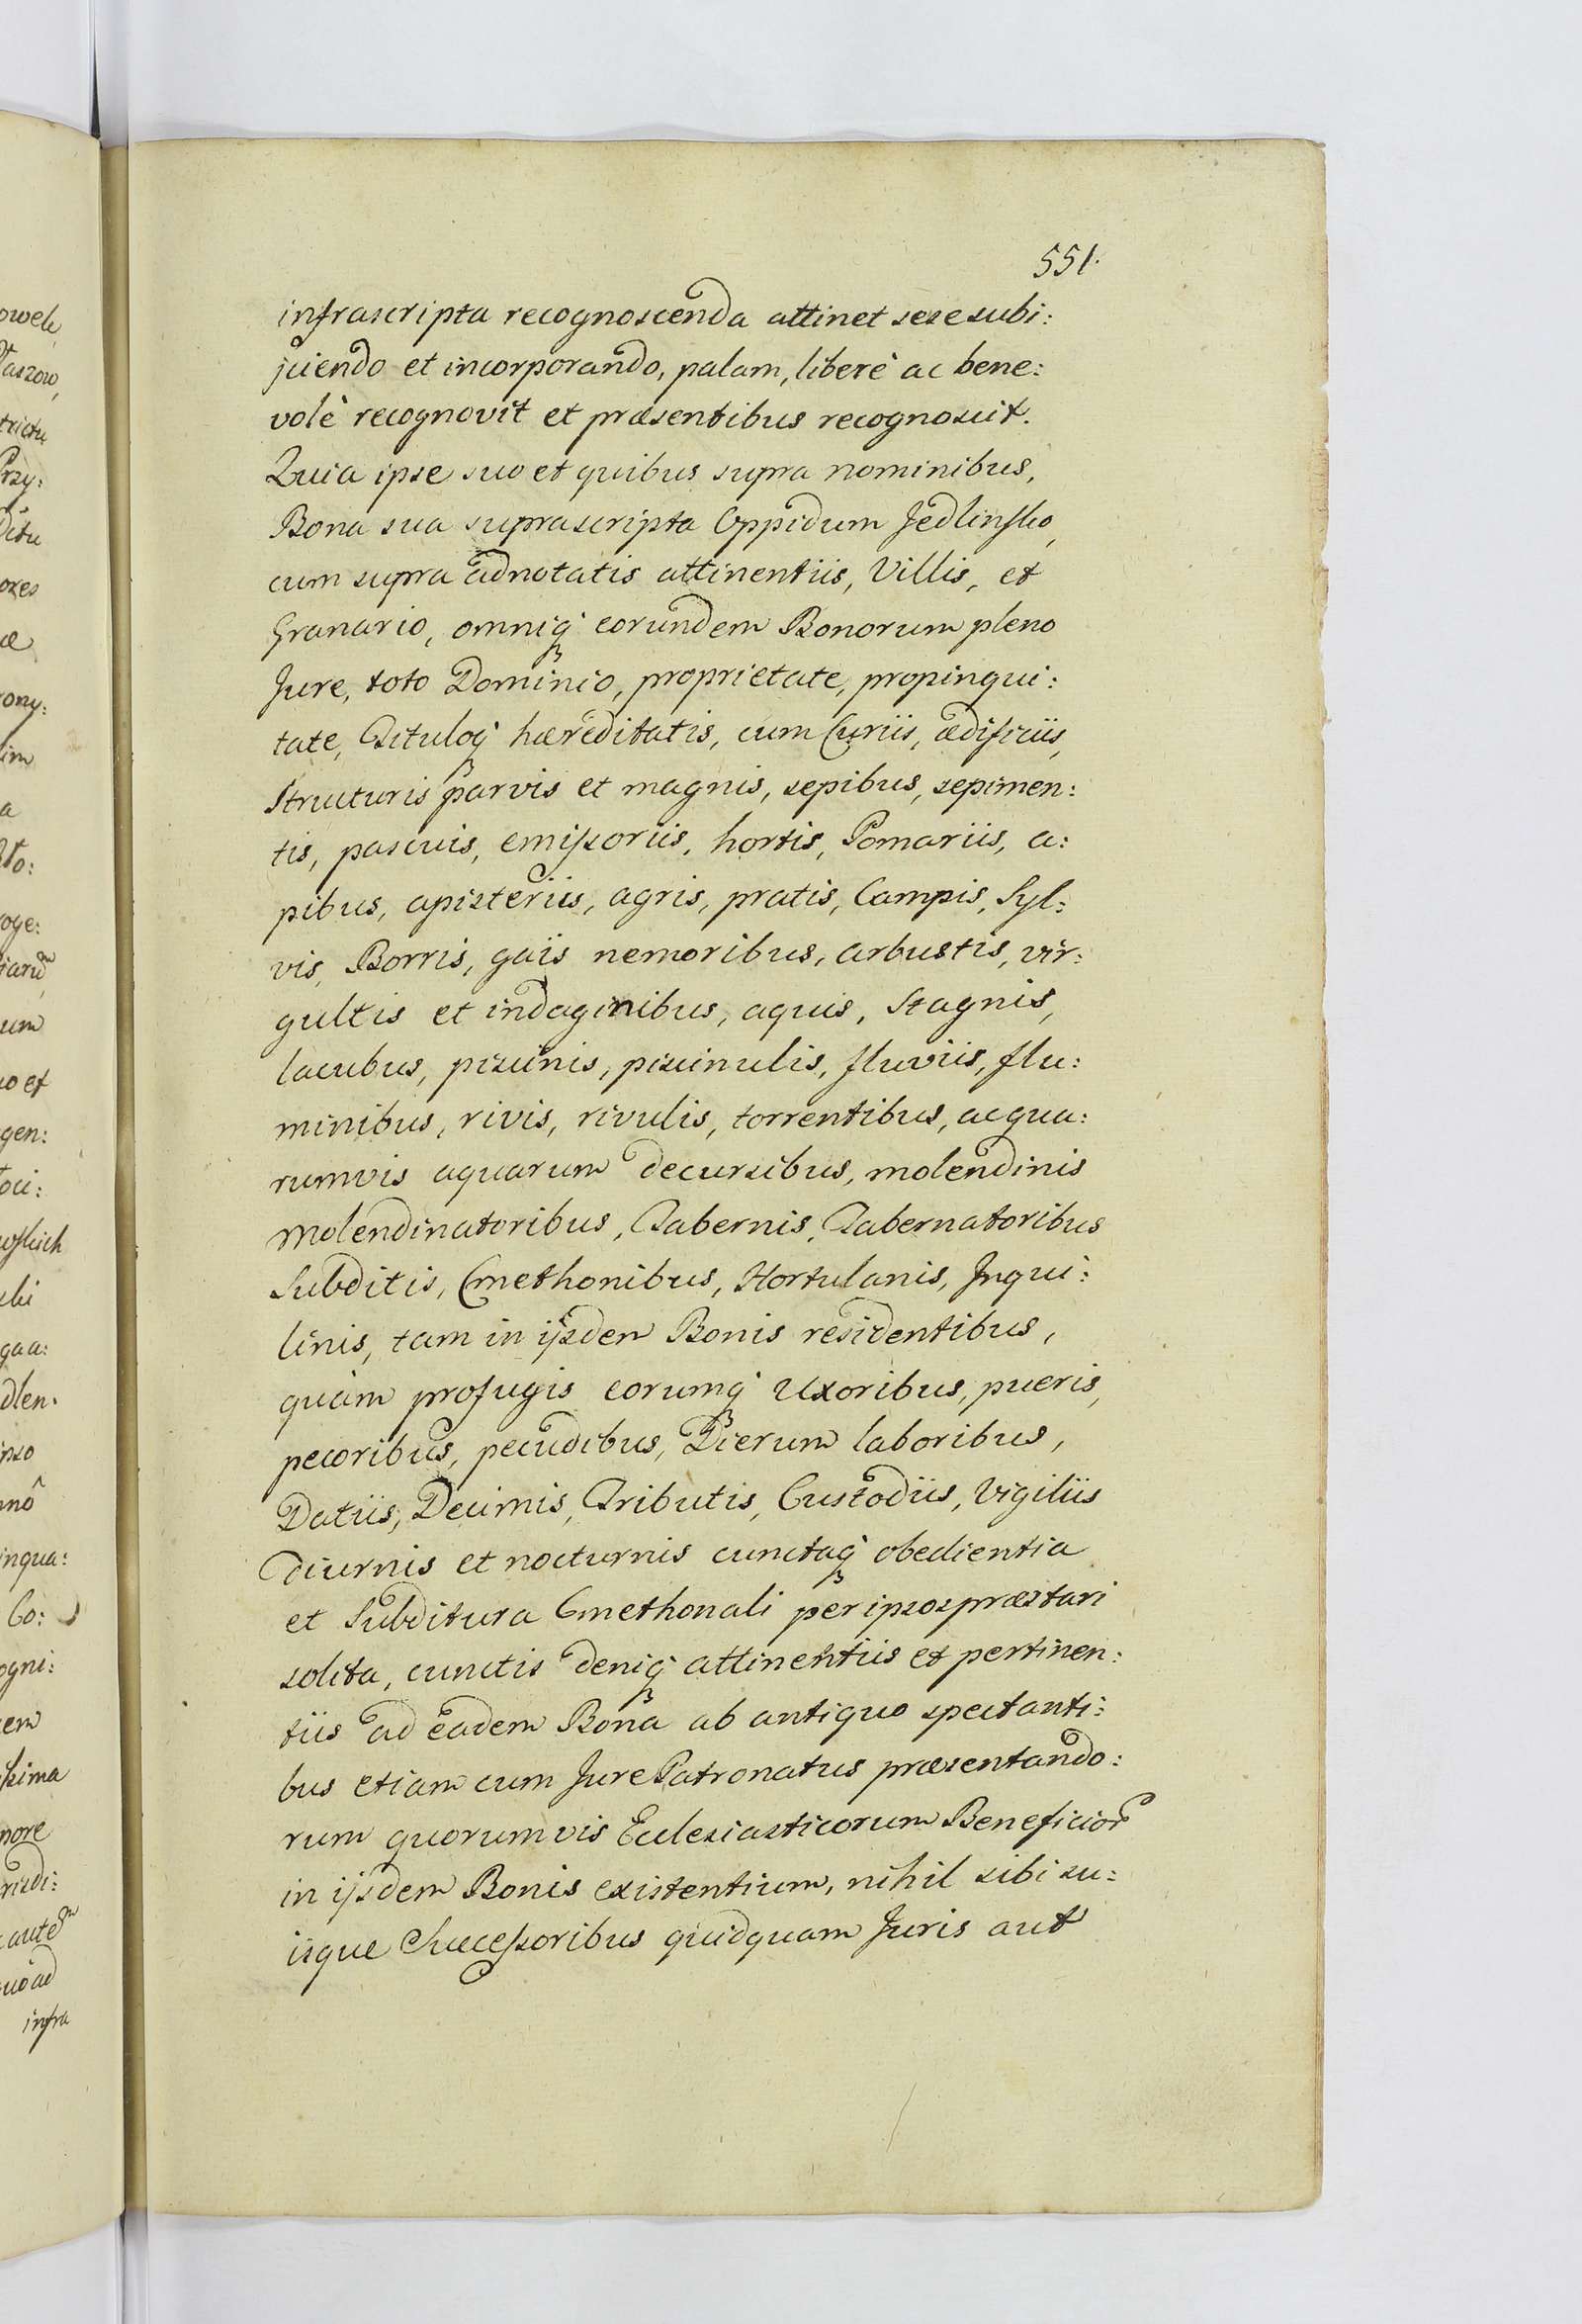 551.
infrascripta recognoscenda attinet sese subi:
jciendo et incorporando, palam, liberè ac bene:
volè recognovit et præsentibus recognoscit.
Quia ipse suo et quibus supra nominibus,
Bona sua suprascripta Oppidum Jedlinsko,
cum supra adnotatis attinentiis, Villis, et
Granario, omniq́ȝ eorundem Bonorum pleno
Jure, toto Dominio, proprietate, propinqui:
tate, Tituloq́ȝ hæreditatis, cum Curiis, ædificiis,
Structuris parvis et magnis, sepibus, sepimen:
tis, pascuis, emissoriis, hortis, Pomariis, a:
pibus, apisteriis, agris, pratis, Campis, Syl:
vis, Borris, gaiis nemoribus, arbustis, vir:
gultis et indaginibus, aquis, Stagnis,
lacubus, piscinis, piscinulis, fluviis, flu:
minibus, rivis, rivulis, torrentibus, ac qua:
rumvis aquarum decursibus, molendinis
Molendinatoribus, Tabernis, Tabernatoribus
Subditis, Cmethonibus, Hortulanis, Inqui:
linis, tam in ijsdem Bonis residentibus,
quàm profugis eorumq́ȝ Uxoribus, pueris,
pecoribus, pecudibus, Dierum laboribus,
Datiis, Decimis, Tributis, Custodiis, Vigiliis
diurnis et nocturnis cunctaq́ȝ obedientia
et Subditura Cmethonali per ipsos præstari
solita, cunctis deniq́ȝ attinentiis et pertinen:
tiis ad eadem Bona ab antiquo spectanti:
bus etiam cum Jure Patronatus præsentando:
rum quorumvis Ecclesiasticorum Beneficior̃
in ijsdem Bonis existentium, nihil sibi su:
isque Successoribus quidquam Juris aut